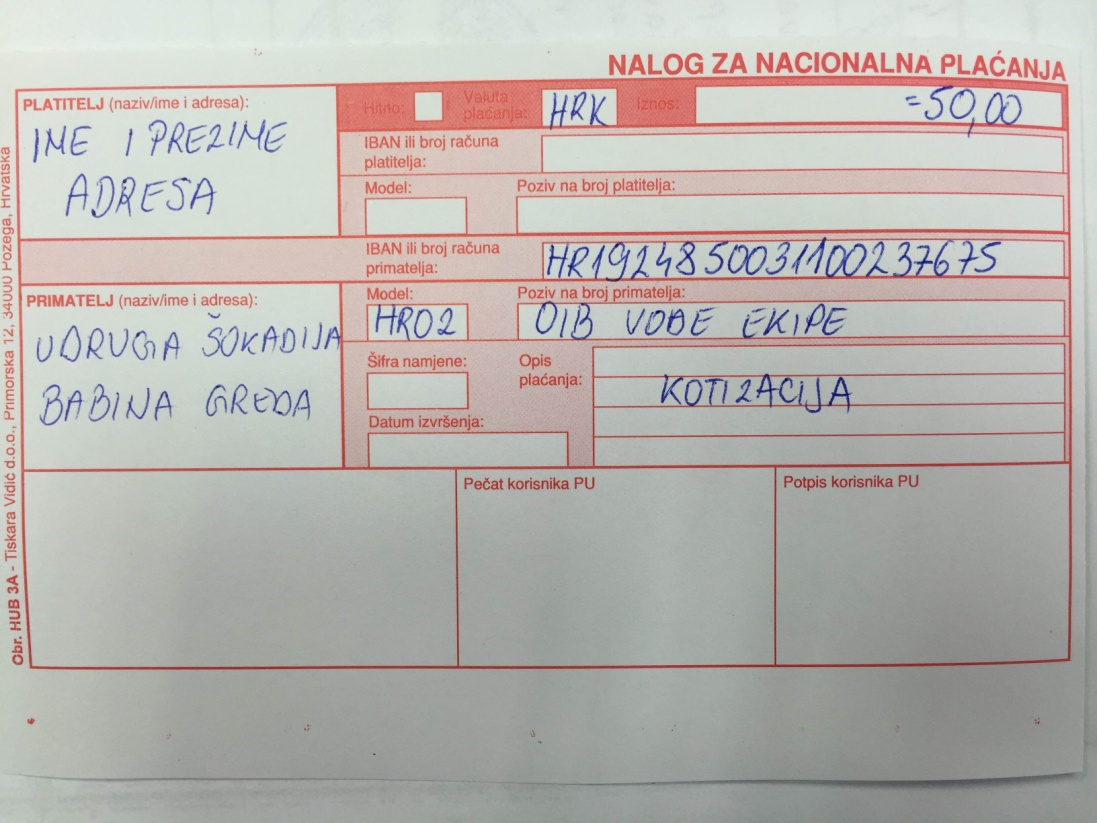 NALOG ZA NACIONALNA PLAĆANJA
PLATITELJ (naziv/ime i adresa):
IME I PREZIME
ADRESA
Hitno:
Valuta plaćanja:
HRK
Iznos:
=50,00
IBAN ili broj računa platitelja:
Model:
Poziv na broj platitelja:
IBAN ili broj računa primatelja:
HR1924850031100237675
PRIMATELJ (naziv/ime i adresa):
UDRUGA ŠOKADIJA
BABINA GREDA
Model:
HR02
Poziv na broj primatelja:
OIB VOĐE EKIPE
Šifra namjene:
Opis plaćanja:
KOTIZACIJA
Datum izvršenja:
Pečat korisnika PU
Potpis korisnika PU
Obr. HUB 3A - Tiskara Vidić d.o.o., Primorska 12, 34000 Pozega, Hrvatska